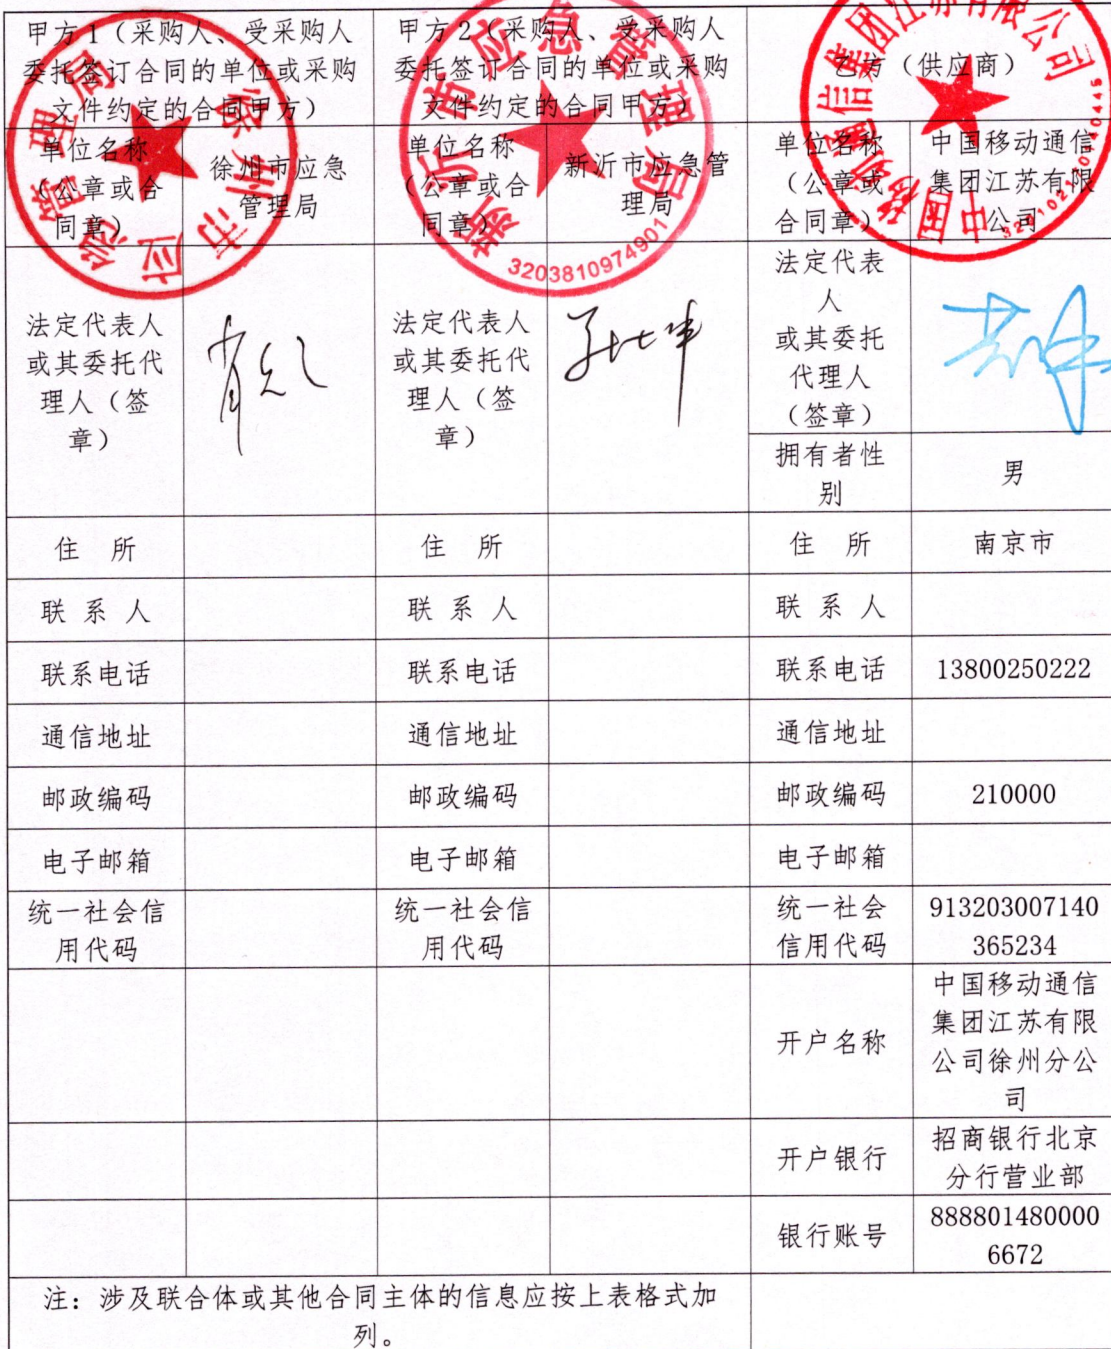 甲方1（采购人、受采购人
委托签订合同的单位或采购
文件约定的合同甲方）
甲方2（采购人、受采购人
委托签订合同的单位或采购
文件约定的合同甲方）
乙方（供应商）
单位名称
（公章或合
同章）
徐州市应急
管理局
单位名称
（公章或合
同章）
新沂市应急管
理局
单位名称
（公章或
合同章）
中国移动通信
集团江苏有限
公司
徐州市应急管理局
新沂市应急管理局
3203810974901
中国移动通信集团江苏有限公司
法定代表人
或其委托代
理人（签
章）
法定代表人
或其委托代
理人（签
章）
法定代表
人
或其委托
代理人
（签章）
拥有者性
别
男
住 所
住 所
住 所
南京市
联 系 人
联 系 人
联 系 人
联系电话
联系电话
联系电话
13800250222
通信地址
通信地址
通信地址
邮政编码
邮政编码
邮政编码
210000
电子邮箱
电子邮箱
电子邮箱
统一社会信
用代码
统一社会信
用代码
统一社会
信用代码
913203007140
365234
开户名称
中国移动通信
集团江苏有限
公司徐州分公
司
开户银行
招商银行北京
分行营业部
银行账号
888801480000
6672
注：涉及联合体或其他合同主体的信息应按上表格式加
列。